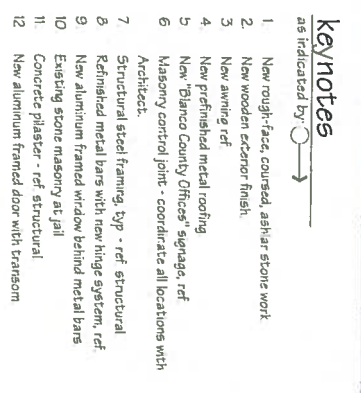 keynotes
as indicated by:
1. New rough-face, coursed, ashlar stone work
2. New wooden exterior finish.
3 New awning ref.
4. New prefinished metal roofing
5 New "Blanco County Offices" signage, ref
6 Masonry control joint - coordinate all locations with
Architect.
7. Structural steel framing, typ - ref structural
8 Refinished metal bars with new hinge system, ref.
9. New aluminum framed window behind metal bars
10 Existing stone masonry at jail
11. Concrete pilaster - ref. structural
12 New aluminum framed door with transom